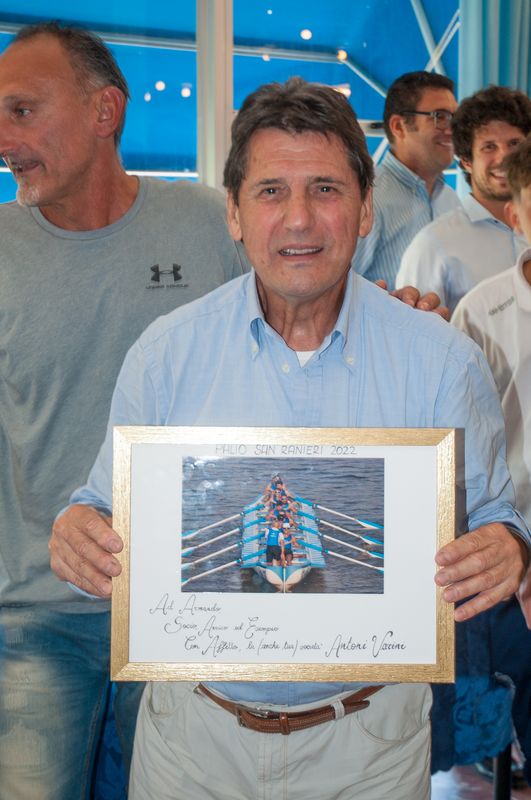 UNDER ARMOUR
PALIO SAN RANIERI 2022
Ad Armando
Socio, Amico ed Esempio
Con Affetto, la (anche tua) società Antoni Vacine